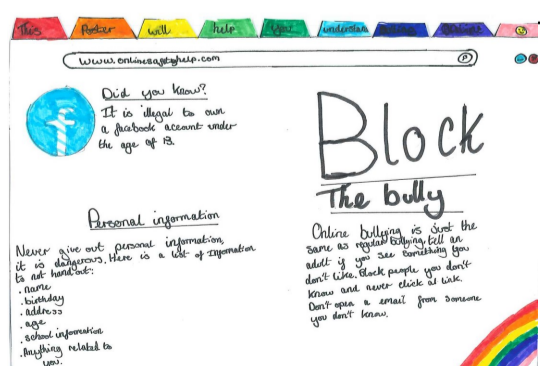 This Poster will help you understand
www.onlinesaftyhelp.com
Did you know?
It is illegal to own
a facebook account under
the age of 13.
f
Block
The bully
Personal information
Never give out personal information,
it is dangerous. Here is a list of Information
to not hand out:
. name
. birthday
. address
. age
. school information
. Anything related to
you.
Online bullying is Just the
same as regular bullying, tell an
adult if you see something you
don't like. Block people you don't
know and never click a link.
Don't open a email from someone
you don't know.